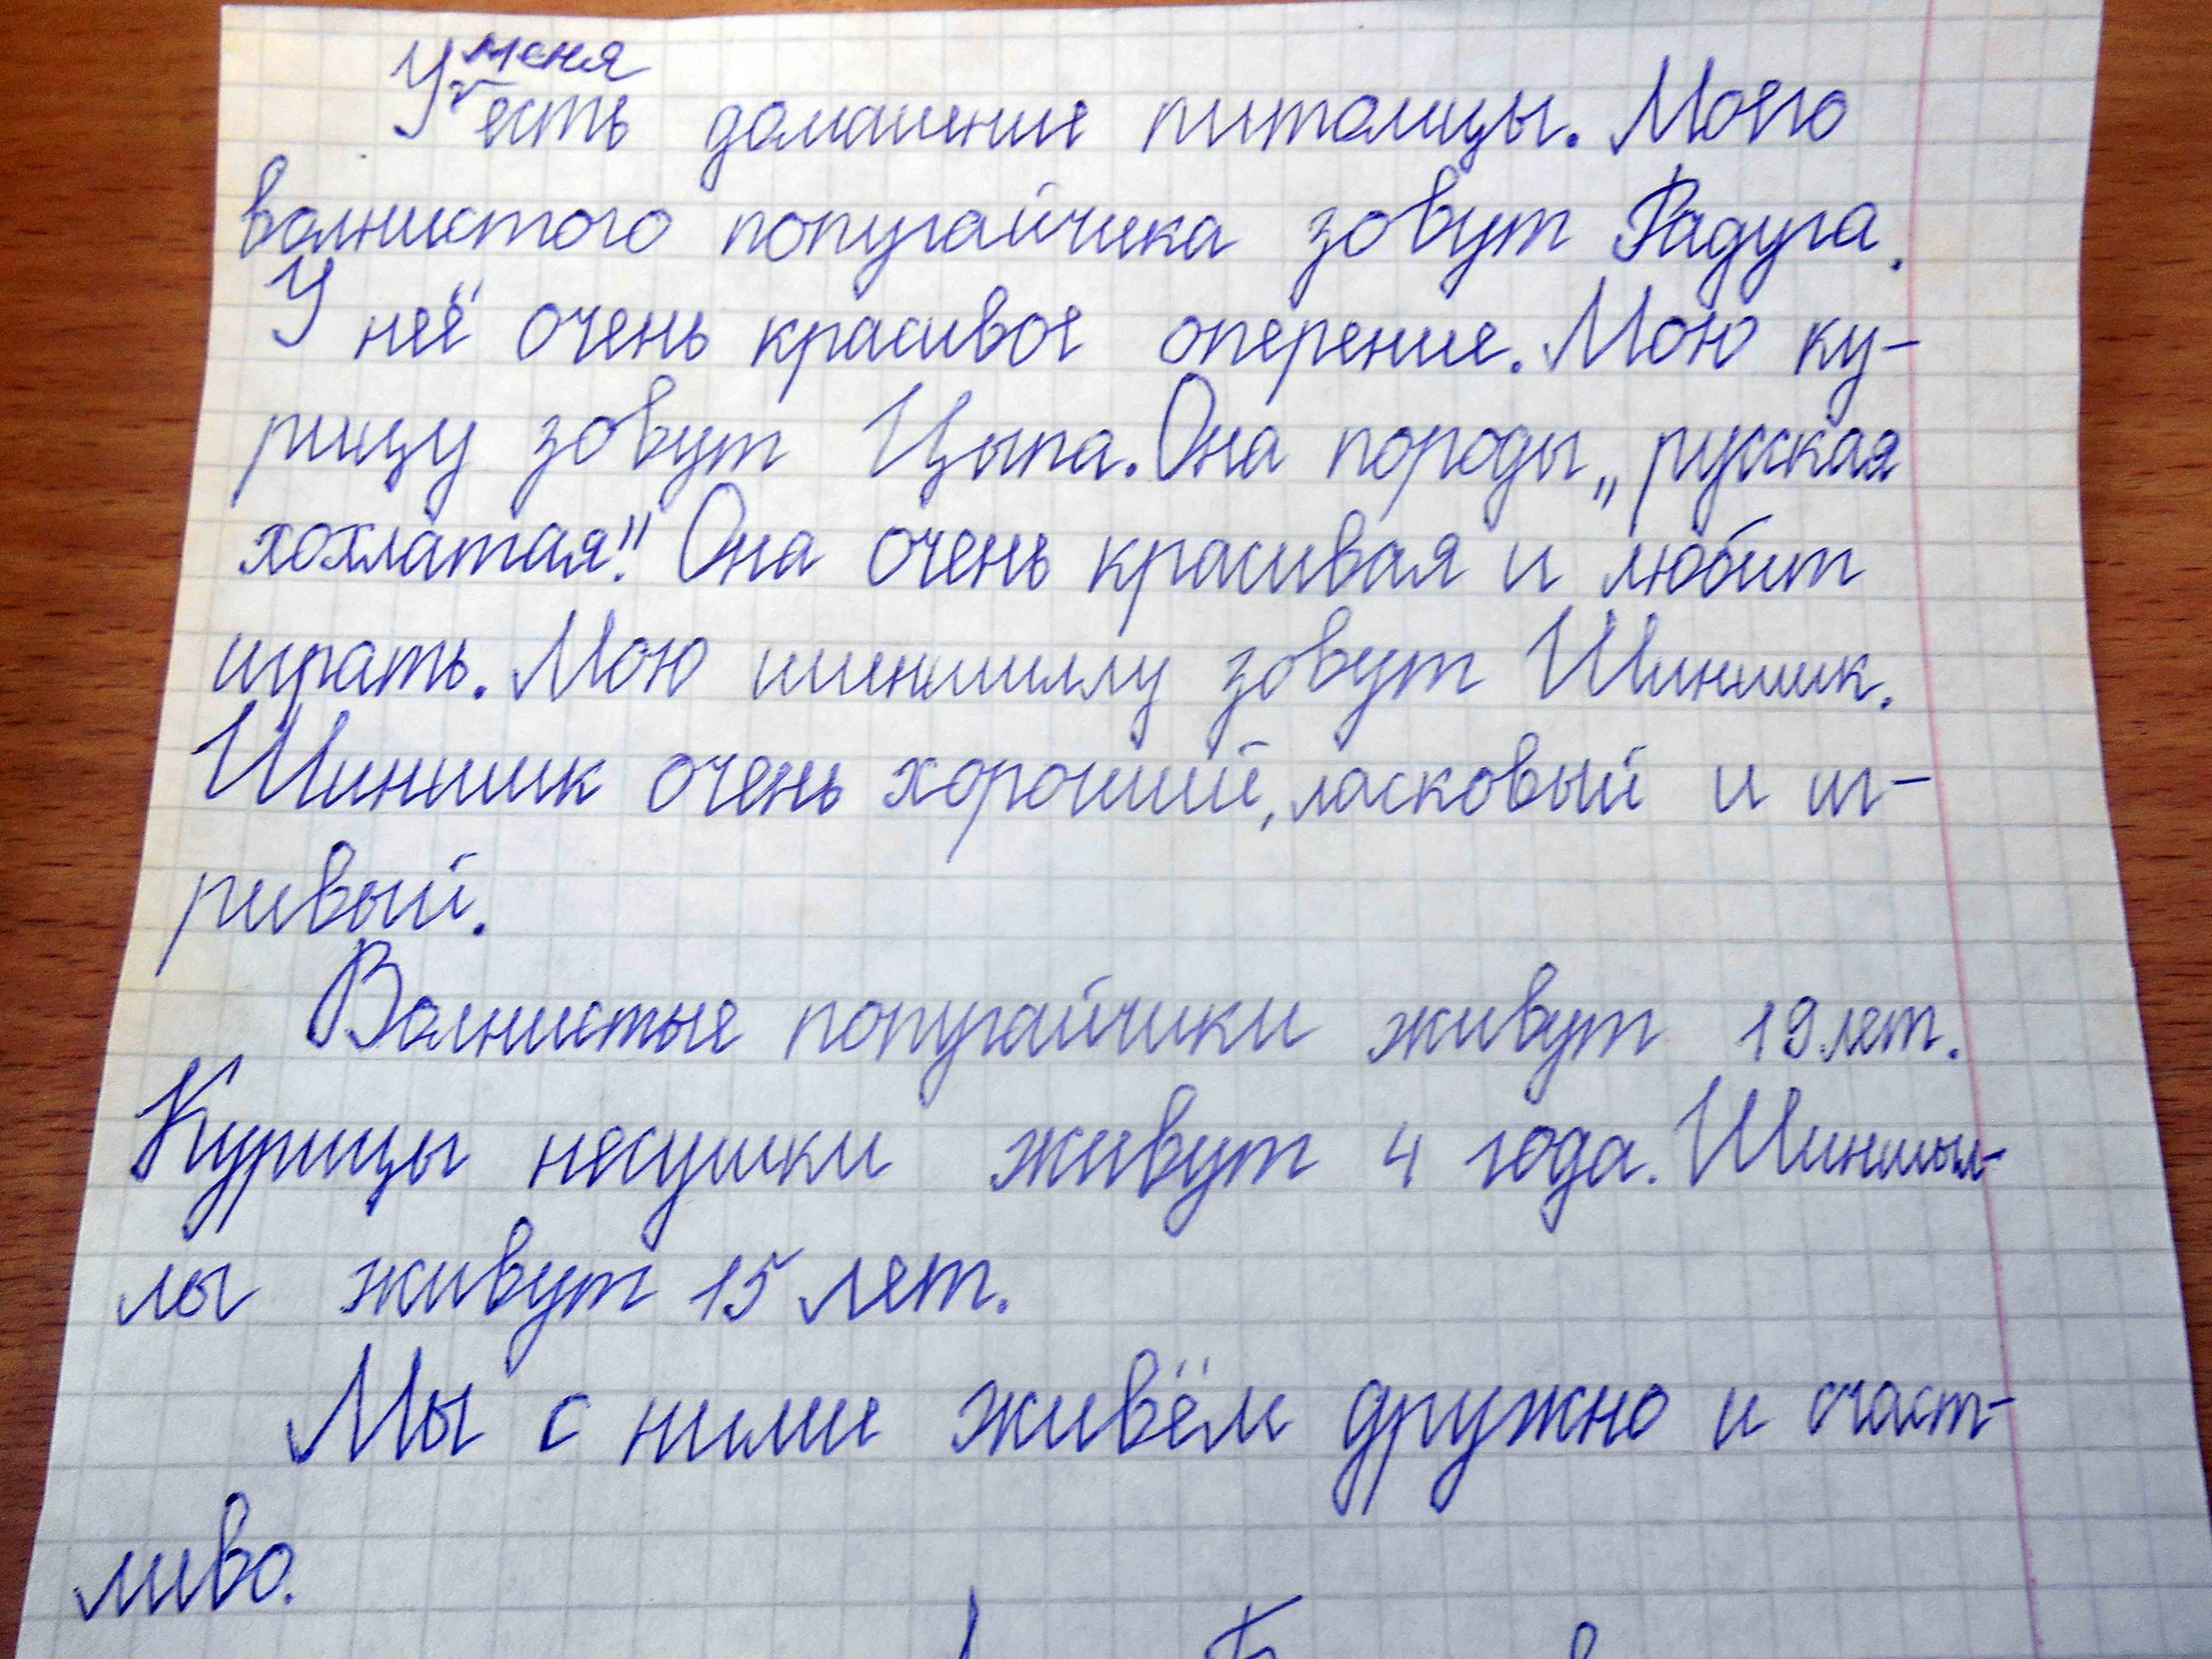 У меня есть домашние питомцы. Моего
волнистого попугайчика зовут Радуга.
У неё очень красивое оперение. Мою ку-
рицу зовут Цыпа. Она породы „русская
хохлатая". Она очень красивая и любит
играть. Мою шиншиллу зовут Шиншик.
Шиншик очень хороший, ласковый и иг-
ривый.
Волнистые попугайчики живут 19 лет.
Курицы несушки живут 4 года. Шиншыл-
лы живут 15 лет.
Мы с ними живём дружно и счаст-
ливо.